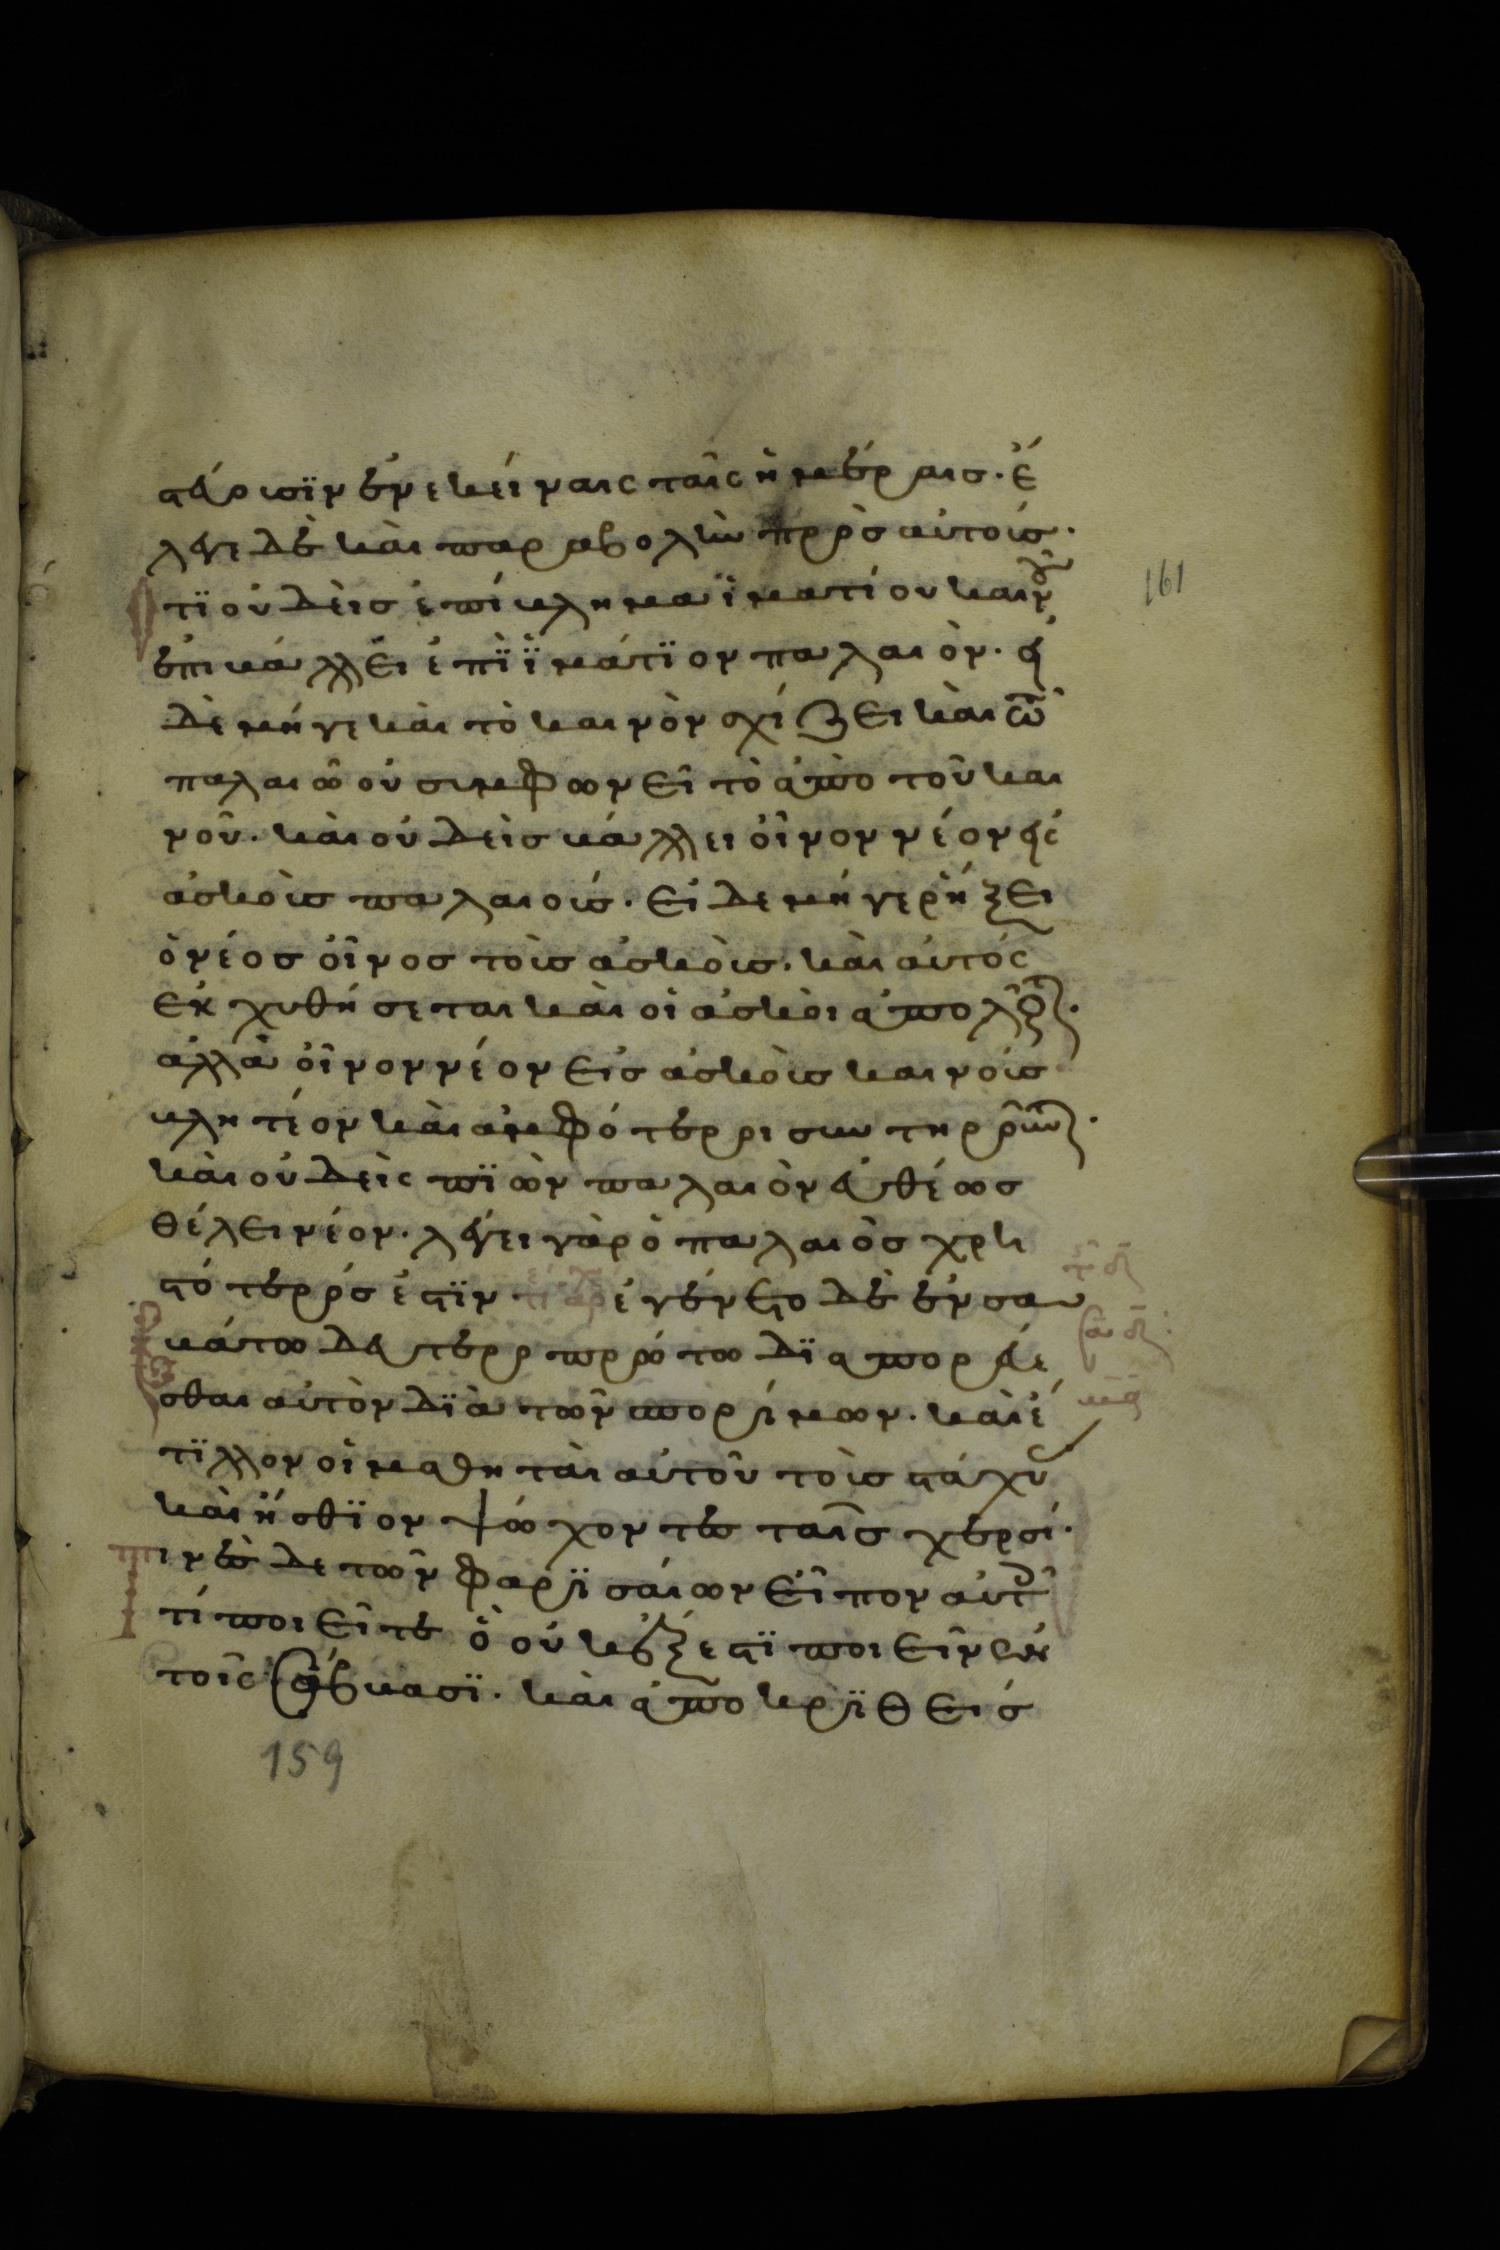 στεύσουσϊν ἐν ἐκείναις ταῖς ἡμέραισ· ἔ
λεγε δὲ καὶ παραβολὴν πρὸσ αὐτούσ·
ὅτϊ οὐδεὶσ ἐπίβλημα ϊματίου καινοῦ
ἐπιβάλλει ἐπῒ ϊμάτϊον παλαιὸν· εἰ
δὲ μήγε καὶ τὸ καινὸν σχίζει καὶ τῶ
παλαιῶ οὐ συμφωνεῖ τὸ ἀπὸ τοῦ και
νοῦ· καὶ οὐδεὶσ βάλλει οἶνον νέον εἰσ
ἀσκοὺσ παλαιούσ· εἰ δε μήγε ῥήξει
ὁ νέοσ οἶνοσ τοὺσ ἀσκοὺσ· καὶ αὐτὸς
ἐκχυθήσεται καὶ οἱ ἀσκοὶ ἀπολοῦνται·
ἀλλὰ οἶνον νέον εἰσ ἀσκοὺσ καινούσ
βλητέον καὶ ἀμφότεροι συντηροῦνται·
καὶ οὐδεὶς πϊὼν παλαιὸν εὐθέωσ
θέλει νέον· λέγει γὰρ ὁ παλαιὸσ χρη
στότεροσ ἐστϊν ἐγένετο δὲ ἐν σαβ
βάτω δευτεροπρώτω δϊαπορεύε
σθαι αὐτὸν δϊὰ τῶν σπορίμων· καὶ ἔ
τϊλλον οἱ μαθηταὶ αὐτοῦ τοὺσ στάχυ
καὶ ἤσθϊον ψώχοντεσ ταῖσ χερσί·
τινὲσ δε τῶν φαρϊσαίων εἶπον αὐτοῖσ
τί ποιεῖτε ὃ οὐκ ἔξεστϊ ποιεῖν ἐν
τοῖς σάββασϊ· καὶ ἀποκρϊθεὶσ
161
159